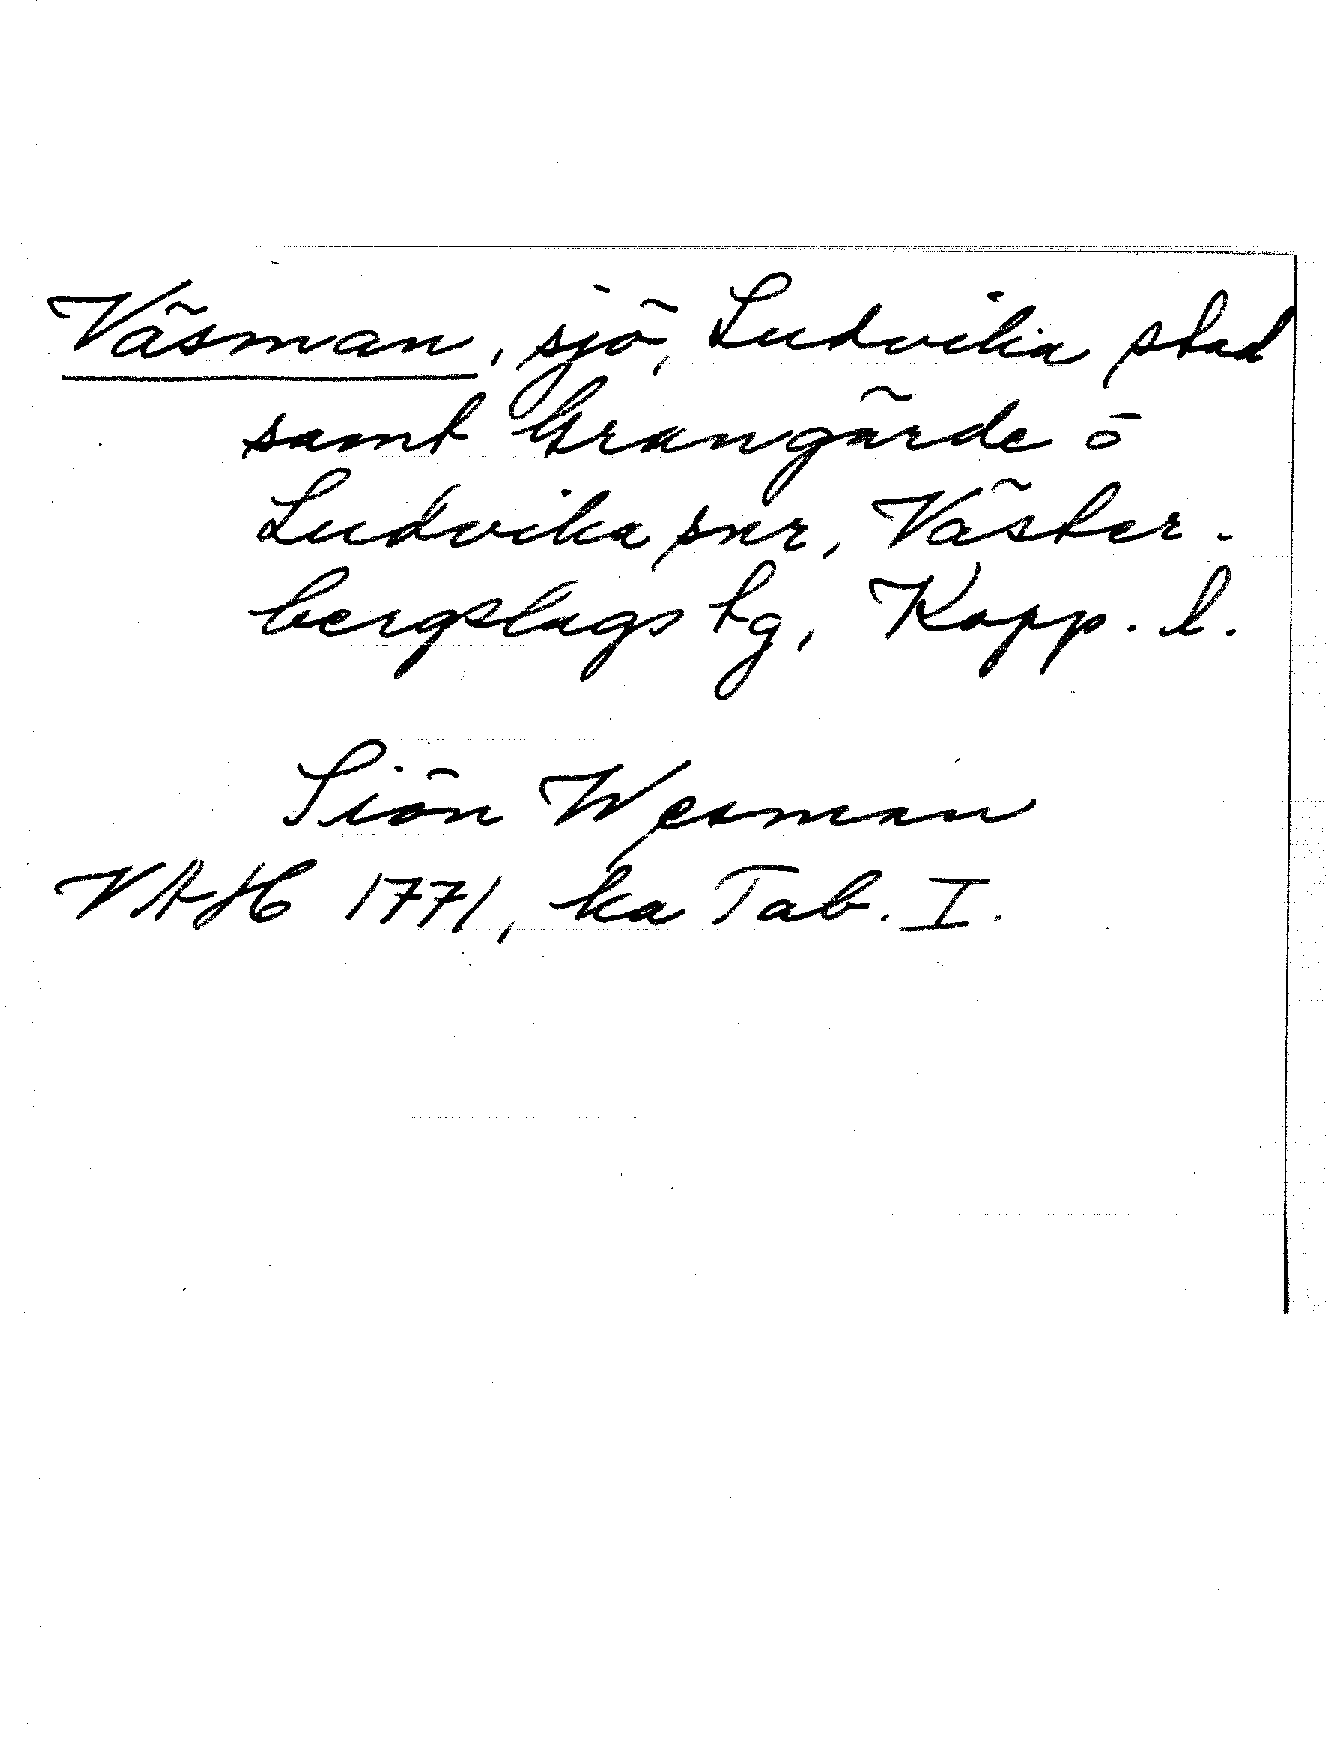 Väsman, sjö, Ludvika stad
samt Grangärde o
Ludvika snr, Väster-
bergslags tg, Kopp. l.
Siön Wesman
VAH 1771, ka Tab. I.